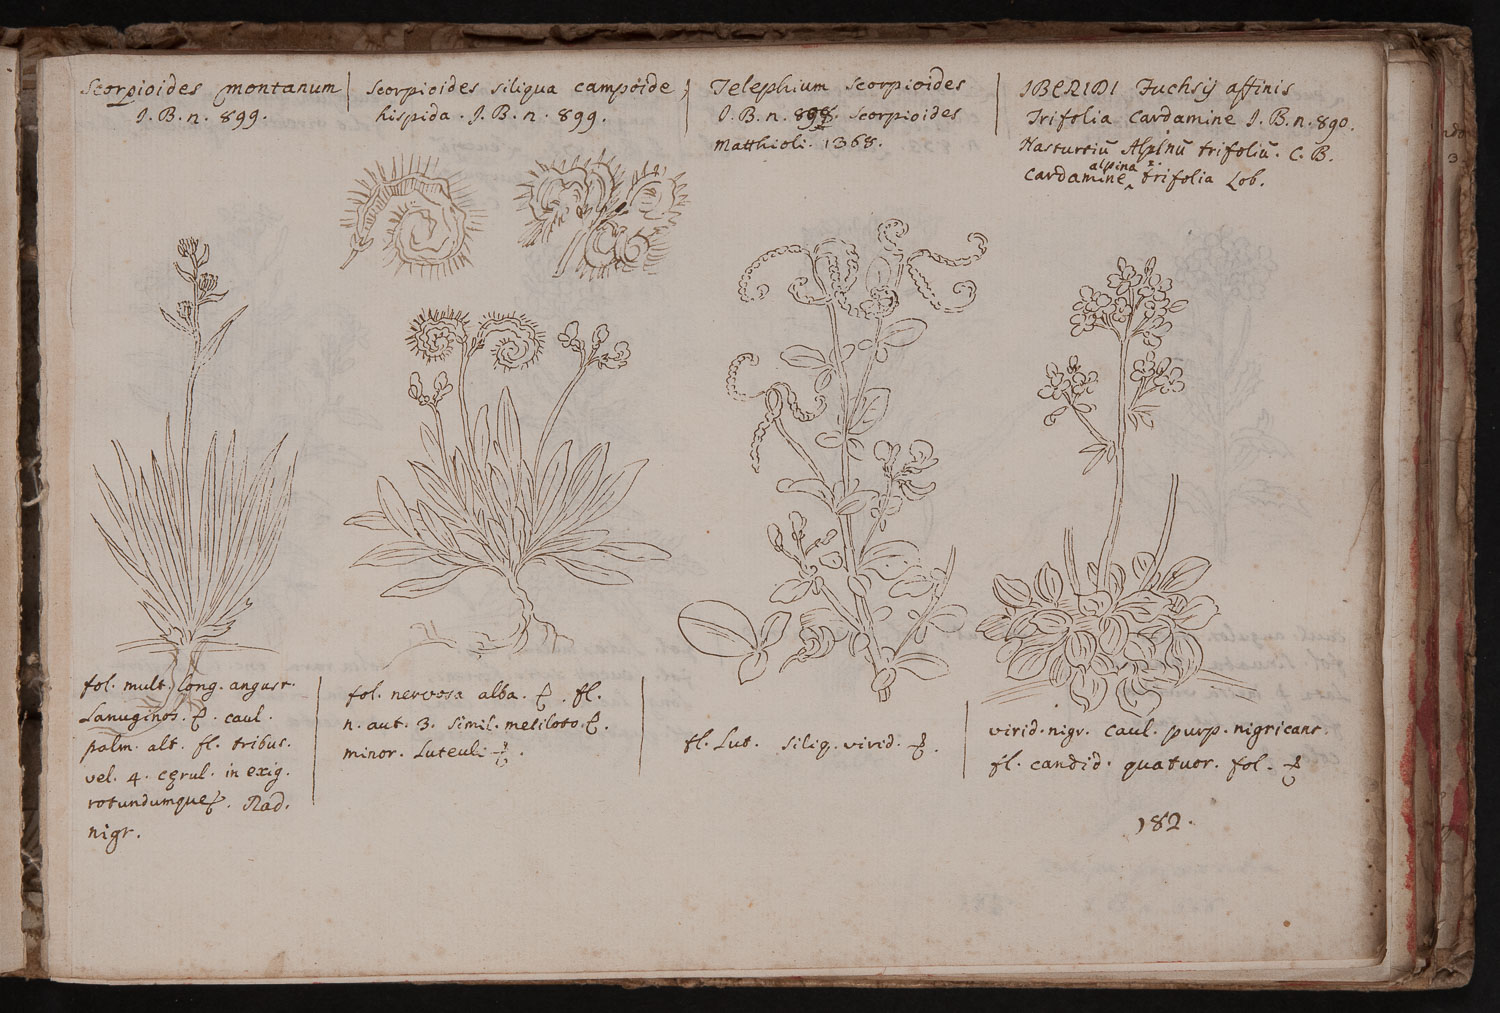 Scorpioides montanum
J. B. n. 899.
Scorpioides siliqua campoide
hispida. J. B. n. 899.
Telephium scorpioides
J. B. n. 898. Scorpioides
Matthioli. 1368.
IBERIDI Fuchsij affinis
Trifolia Cardamine J. B. n. 890.
Nasturtiū Alpinū trifoliū. C. B.
alpina
Cardamine trifolia Lob.
fol. mult. long. angust.
Lanuginos. caul.
palm. alt. fl. tribus.
vel 4. cęrul. in exig.
rotundumque. Rad.
nigr.
fol. nervosa alba. fl.
n. aut. 3. simil. meliloto.
minor. Luteuli
fl. Lut. siliq. virid.
virid. nigr. caul. purp. nigricant.
fl. candid. quatuor. fol.
182.